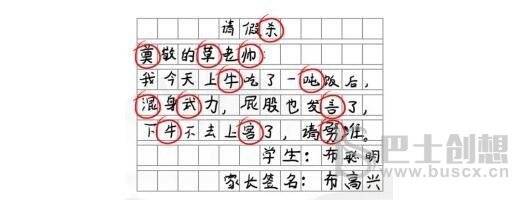 请假杀
奠敬的草老帅:
我今天上牛吃了一吨饭后,
混身武力,屁股也发言了,
下牛不去上写了,请努准。
学生:布聪明
家长签名:布高兴
巴士创想
www.buscx.cn